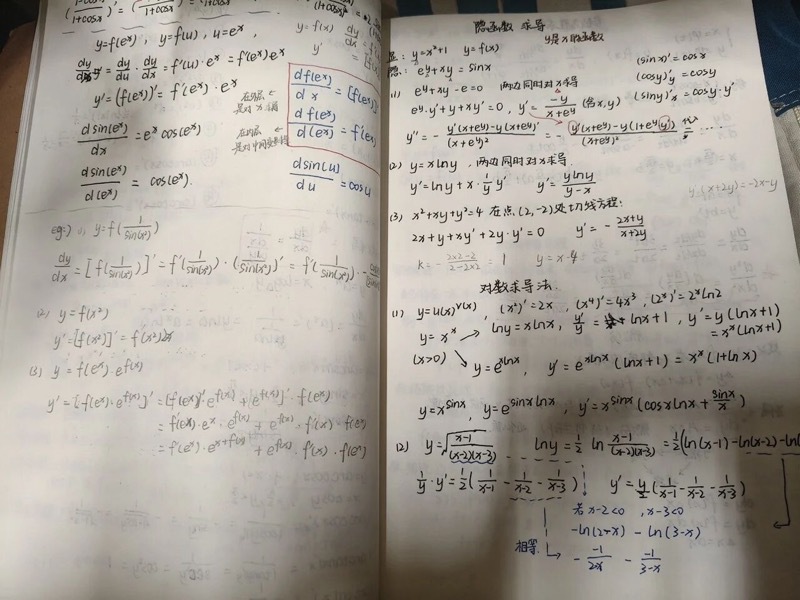 y=f(eˣ), y=f(u), u=eˣ,
dy/dx = dy/du · du/dx = f'(u)·eˣ = f'(eˣ)eˣ
y'=(f(eˣ))'=f'(eˣ)·eˣ
dsin(eˣ)/dx = eˣcos(eˣ)
dsin(eˣ)/d(eˣ) = cos(eˣ).
df(eˣ)/dx = [f(eˣ)]
df(eˣ)/d(eˣ) = f'(eˣ)
dsin(u)/du = cosu
eg: (1) y=f(1/sin(x²))
dy/dx = [f(1/sin(x²))]' = f'(1/sin(x²))·(1/sin(x²))' = f'(1/sin(x²))·
(2) y=f(x²)
y'=[f(x²)]'=f'(x²)2x
(3) y=f(eˣ)·e^f(x)
y'=[f(eˣ)·e^f(x)]'=[f(eˣ)]'·e^f(x)+[e^f(x)]'·f(eˣ)
=f'(eˣ)·eˣ·e^f(x)+e^f(x)·f'(x)·f(eˣ)
=f'(eˣ)·e^(x+f(x))+e^f(x)·f'(x)·f(eˣ)
隐函数 求导
显: y=x²+1 y=f(x) y是x的函数
隐: e^y+xy=sinx
(sinx)'=cosx
(1) e^y+xy-e=0 两边同时对x求导
(cosy)'y=cosy
e^y·y'+y+xy'=0, y'=-y/(x+e^y) (含x,y)
(siny)'x=cosy·y'
y''=-(y'(x+e^y)-y(x+e^y)')/(x+e^y)²=-(y'(x+e^y)-y(1+e^y y'))/(x+e^y)² 代入= ……
(2) y=xlny, 两边同时对x求导.
y'=lny+x·1/y y' y'=ylny/(y-x)
(3) x²+xy+y²=4 在点(2,-2)处切线方程:
y'(x+2y)=-2x-y
2x+y+xy'+2y·y'=0 y'=-(2x+y)/(x+2y)
k=-(2×2-2)/(2-2×2)=1 y=x-4
对数求导法.
(1) y=u(x)^v(x), (x²)'=2x, (x⁴)'=4x³, (2ˣ)'=2ˣln2
y=xˣ → lny=xlnx, y'/y = lnx+1, y'=y(lnx+1)
=xˣ(lnx+1)
(x>0) ↘ y=e^(xlnx), y'=e^(xlnx)(lnx+1)=xˣ(1+lnx)
y=x^sinx, y=e^(sinxlnx), y'=x^sinx(cosxlnx+sinx/x)
(2) y=√((x-1)/((x-2)(x-3))) lny=1/2 ln (x-1)/((x-2)(x-3))=1/2(ln(x-1)-ln(x-2)-ln
1/y·y'=1/2(1/(x-1)-1/(x-2)-1/(x-3)) y'=y/2(1/(x-1)-1/(x-2)-1/(x-3))
若x-2<0, x-3<0
-ln(2-x)-ln(3-x)
相等. -(-1)/(2-x) - (-1)/(3-x)